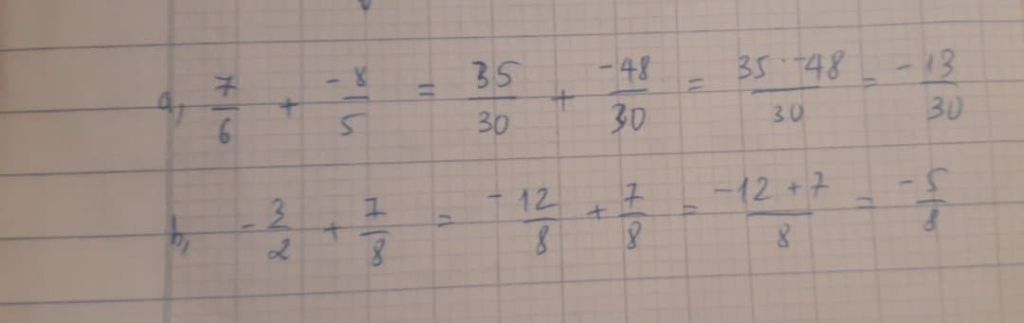 a, 7/6 + -8/5 = 35/30 + -48/30 = 35 - 48/30 = -13/30
b, -3/2 + 7/8 = -12/8 + 7/8 = -12 + 7/8 = -5/8